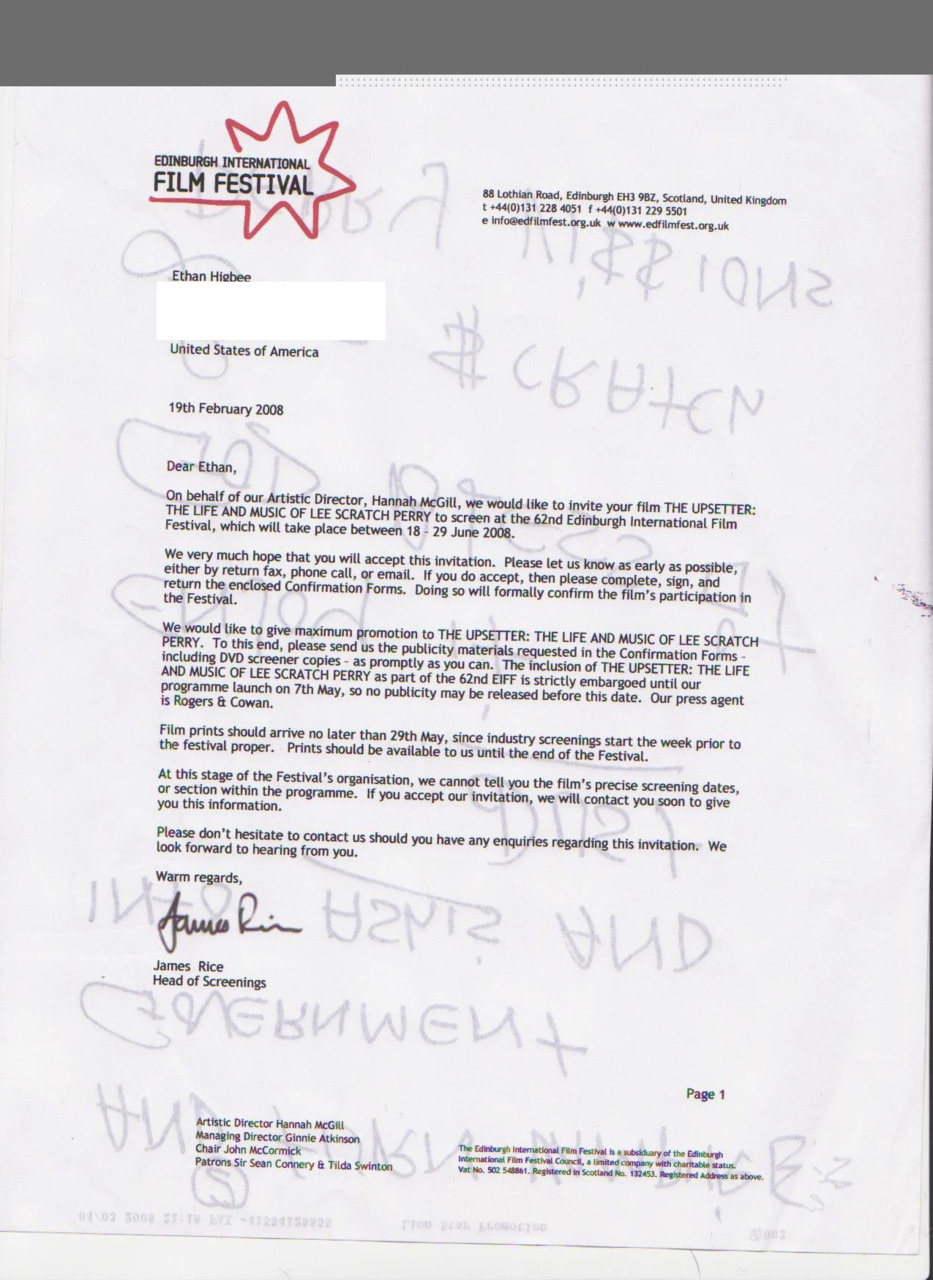 EDINBURGH INTERNATIONAL
FILM FESTIVAL
88 Lothian Road, Edinburgh EH3 9BZ, Scotland, United Kingdom
t +44(0)131 228 4051 f +44(0)131 229 5501
e info@edfilmfest.org.uk w www.edfilmfest.org.uk
Ethan Higbee
United States of America
19th February 2008
Dear Ethan,
On behalf of our Artistic Director, Hannah McGill, we would like to invite your film THE UPSETTER:
THE LIFE AND MUSIC OF LEE SCRATCH PERRY to screen at the 62nd Edinburgh International Film
Festival, which will take place between 18 - 29 June 2008.
We very much hope that you will accept this invitation. Please let us know as early as possible,
either by return fax, phone call, or email. If you do accept, then please complete, sign, and
return the enclosed Confirmation Forms. Doing so will formally confirm the film's participation in
the Festival.
We would like to give maximum promotion to THE UPSETTER: THE LIFE AND MUSIC OF LEE SCRATCH
PERRY. To this end, please send us the publicity materials requested in the Confirmation Forms -
including DVD screener copies - as promptly as you can. The inclusion of THE UPSETTER: THE LIFE
AND MUSIC OF LEE SCRATCH PERRY as part of the 62nd EIFF is strictly embargoed until our
programme launch on 7th May, so no publicity may be released before this date. Our press agent
is Rogers & Cowan.
Film prints should arrive no later than 29th May, since industry screenings start the week prior to
the festival proper. Prints should be available to us until the end of the Festival.
At this stage of the Festival's organisation, we cannot tell you the film's precise screening dates,
or section within the programme. If you accept our invitation, we will contact you soon to give
you this information.
Please don't hesitate to contact us should you have any enquiries regarding this invitation. We
look forward to hearing from you.
Warm regards,
James Rice
Head of Screenings
Page 1
Artistic Director Hannah McGill
Managing Director Ginnie Atkinson
Chair John McCormick
Patrons Sir Sean Connery & Tilda Swinton
The Edinburgh International Film Festival is a subsiduary of the Edinburgh
International Film Festival Council, a limited company with charitable status.
Vat No. 502 548861. Registered in Scotland No. 132453. Registered Address as above.